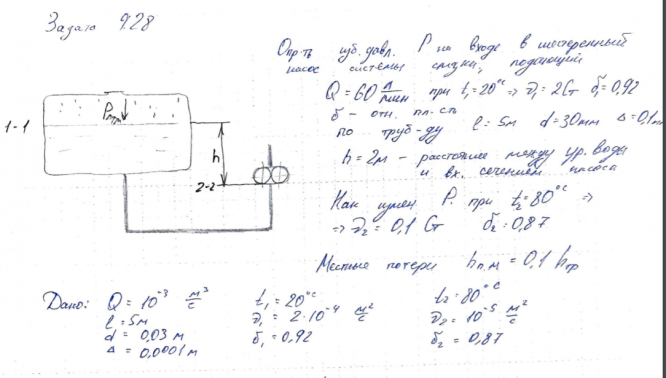 Задача 9.28
Опр-ть изб. давл. P на входе в шестеренный
насос системы смазки, подающий
Q = 60 л/мин при t₁=20°C ⇒ ν₁ = 2Ст δ₁=0,92
δ - отн. пл-сть
по труб-ду l = 5м d = 30мм Δ = 0,1мм
h = 2м - расстояние между ур. воды
и вх. сечением насоса
Как измен P при t₂=80°C ⇒
⇒ ν₂ = 0,1 Ст δ₂=0,87
Местные потери hп.м = 0,1 hтр
1-1
h
2-2
Дано: Q = 10⁻³ м³/с t₁ = 20°C t₂ = 80°C
l = 5м ν₁ = 2·10⁻⁴ м²/с ν₂ = 10⁻⁵ м²/с
d = 0,03 м δ₁ = 0,92 δ₂ = 0,87
Δ = 0,0001 м